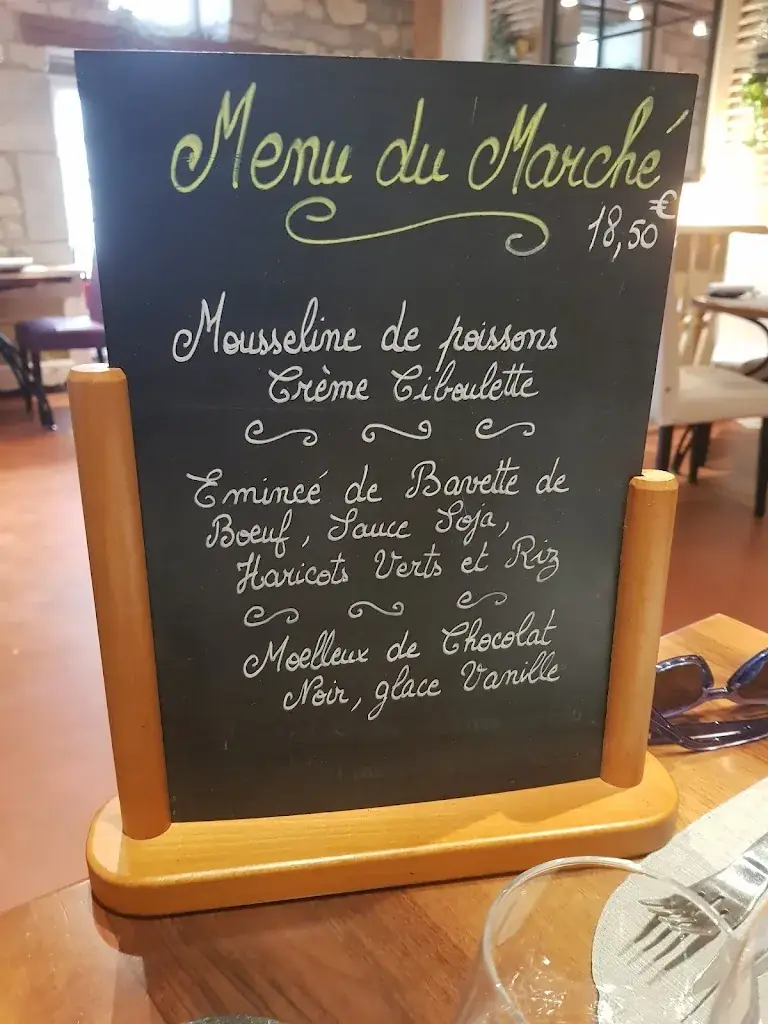 Menu du Marché
18,50€
Mousseline de poissons
Crème Ciboulette
Emincé de Bavette de
Boeuf, Sauce Soja,
Haricots Verts et Riz
Moelleux de Chocolat
Noir, glace Vanille